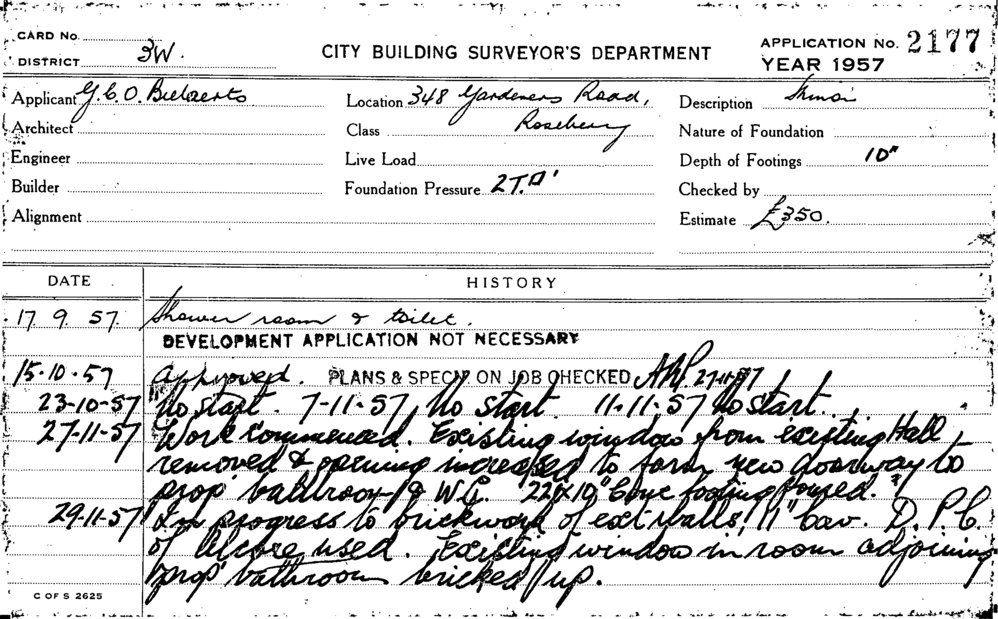 CARD No.
DISTRICT 3W.
CITY BUILDING SURVEYOR'S DEPARTMENT
APPLICATION No. 2177
YEAR 1957
Applicant G.C.O.
Architect
Engineer
Builder
Alignment
Location 348 Gardeners Road,
Rosebery
Class
Live Load
Foundation Pressure 2T.□'
Description
Nature of Foundation
Depth of Footings 10"
Checked by
Estimate £350.
DATE HISTORY
17 9. 57. Shower room & toilet.
DEVELOPMENT APPLICATION NOT NECESSARY
15-10-57 Approved. PLANS & SPECN. ON JOB CHECKED 27-11-57
23-10-57 No start. 7-11-57, No start. 11-11-57 No start.
27-11-57 Work commenced. Existing window from existing Hall
removed & opening increased to form new doorway to
prop' bathroom & WC. 22"x10" Conc footing poured.
29-11-57 In progress to brickwork of ext walls. 11" Cav. D.P.C.
of used. Existing window in room adjoining
prop' bathroom bricked up.
C OF S 2625